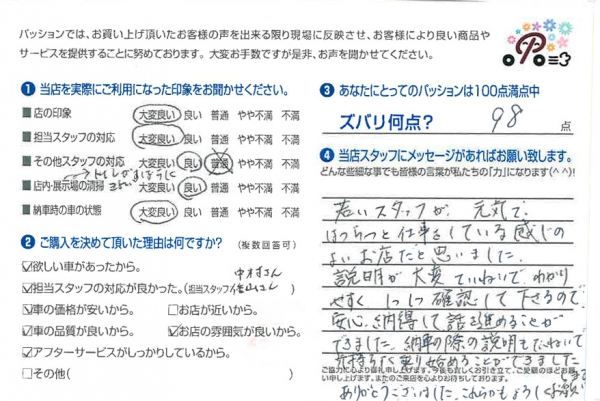 パッションでは、お買い上げ頂いたお客様の声を出来る限り現場に反映させ、お客様により良い商品や
サービスを提供することに努めております。大変お手数ですが是非、お声を聞かせてください。
❶ 当店を実際にご利用になった印象をお聞かせください。
■ 店の印象 大変良い 良い 普通 やや不満 不満
■ 担当スタッフの対応 大変良い 良い 普通 やや不満 不満
■ その他スタッフの対応 大変良い 良い 普通 やや不満 不満
→トイレが
■ 店内・展示場の清掃 きれい 大変良い 良い 普通 やや不満 不満
■ 納車時の車の状態 大変良い 良い 普通 やや不満 不満
❷ ご購入を決めて頂いた理由は何ですか？ (複数回答可)
☑欲しい車があったから。
中村さん
☑担当スタッフの対応が良かった。(担当スタッフ 山さん
☑車の価格が安いから。 □お店が近いから。
☑車の品質が良いから。 ☑お店の雰囲気が良いから。
☑アフターサービスがしっかりしているから。
□その他(
❸ あなたにとってのパッションは100点満点中
ズバリ何点？ 98 点
❹ 当店スタッフにメッセージがあればお願い致します。
どんな些細な事でも皆様の言葉が私たちの「力」になります(^^)!
若いスタッフが、元気で、
はつらつと仕事をしている感じの
よいお店だと思いました。
説明が大変ていねいで、わかり
やすく 1つ1つ確認して下さるので、
安心、納得して話を進めることが
できました。納車の際の説明もていねいで
気持ちよく乗り始めることができました。
ご協力に心より御礼申し上げます。今後も宜しくお引き立て、ご愛顧のほどお願
い申し上げます。またのご来店を心よりお待ちしております。
ありがとうございました。これからもよろしくお願い